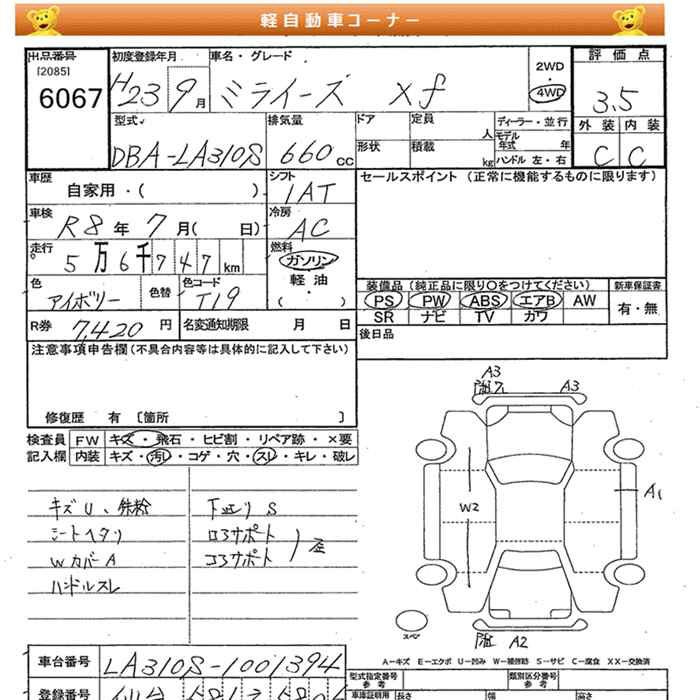 軽自動車コーナー
出品番号 初度登録年月 車名・グレード 評価点
[2085]
6067 H23 9月 ミライース Xf 2WD
4WD 3.5
型式 排気量 ドア 定員 人 ディーラー・並行 外装 内装
モデル年式 年
DBA-LA310S 660cc 形状 積載 kg ハンドル 左・右 C C
車歴 シフト セールスポイント(正常に機能するものに限ります)
自家用・( ) IAT
車検 冷房
R8年7月( 日) AC
走行 燃料
5万6千747km ガソリン
軽油
・
( )
色 色替 色コード 装備品(純正品に限り〇をつけてください) 新車保証書
アイボリー T19 PS PW ABS エアB AW 有・無
SR ナビ TV カワ
R券 7,420円 名変通知期限 月 日 後日品
注意事項申告欄(不具合内容等は具体的に記入して下さい)
修復歴 有 [箇所 ]
検査員 FW キズ・飛石・ヒビ割・リペア跡・×要
記入欄 内装 キズ・汚し・コゲ・穴・スレ・キレ・破レ
キズU、鉄粉 下回りS
シートヘタリ ロアサポート
WカバーA コアサポート
ハンドルスレ
A3
A3
W2
A1
スペア
A2
A-キズ E-エクボ U-凹み W-補修跡 S-サビ C-腐食 XX-交換済
車台番号 LA310S-1001394
型式指定番号 参考 類別区分番号 参考
登録番号 車庫証明用 長さ 幅 高さ